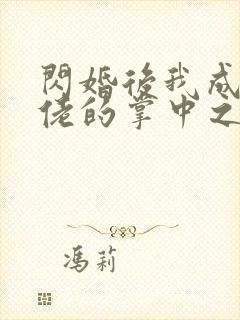 閃婚後我成
佬的掌中之
馮莉